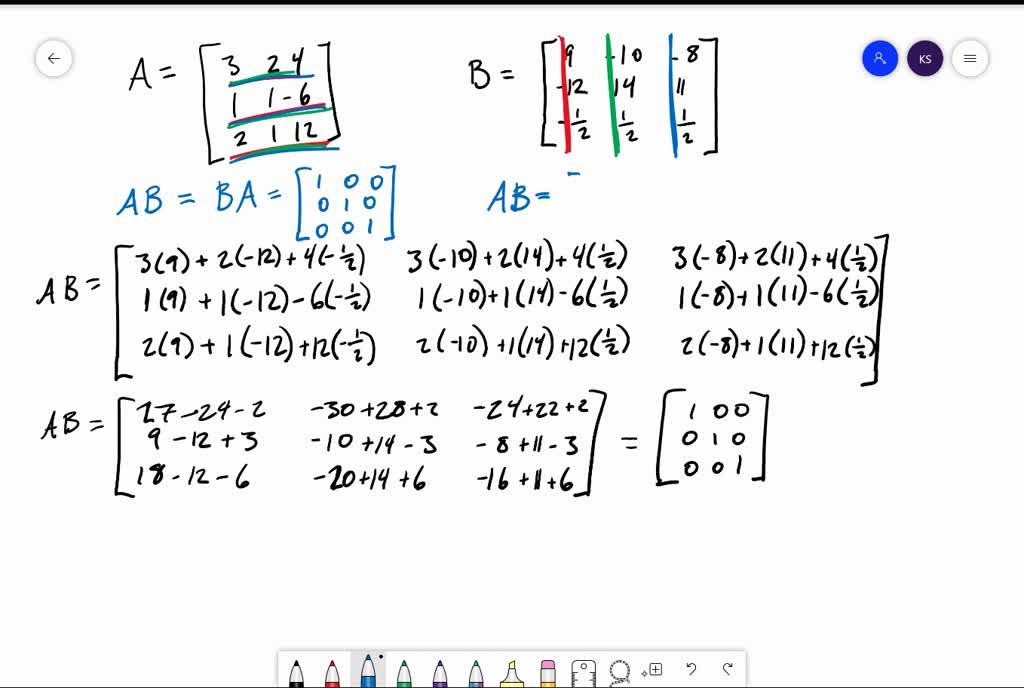 A = [ 3 2 4
1 1 -6
2 1 12 ]
B = [ 9 -10 -8
-12 14 11
-1/2 1/2 1/2 ]
KS
AB = BA = [ 1 0 0
0 1 0
0 0 1 ]
AB =
AB = [ 3(9) + 2(-12) + 4(-1/2) 3(-10) + 2(14) + 4(1/2) 3(-8) + 2(11) + 4(1/2)
1(9) + 1(-12) - 6(-1/2) 1(-10) + 1(14) - 6(1/2) 1(-8) + 1(11) - 6(1/2)
2(9) + 1(-12) + 12(-1/2) 2(-10) + 1(14) + 12(1/2) 2(-8) + 1(11) + 12(1/2) ]
AB = [ 27 - 24 - 2 -30 + 28 + 2 -24 + 22 + 2 ] = [ 1 0 0
9 - 12 + 3 -10 + 14 - 3 -8 + 11 - 3 0 1 0
18 - 12 - 6 -20 + 14 + 6 -16 + 11 + 6 0 0 1 ]